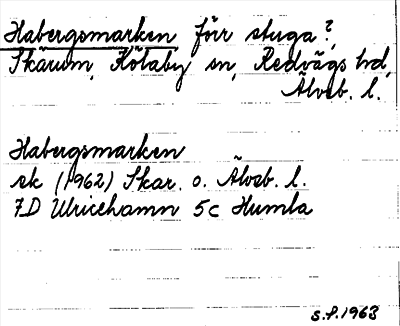 Habergsmarken förr stuga?,
Skärum, Kölaby sn, Redvägs hd,
Älvsb. l.
Habergsmarken
ek (1962) Skar. o. Älvsb. l.
7D Ulricehamn 5c Humla
S.P. 1963